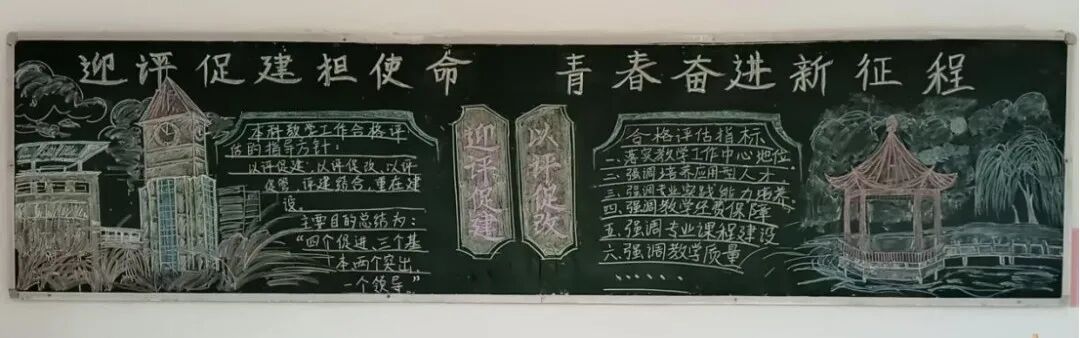 迎评促建担使命 青春奋进新征程
本科教学工作合格评
估的指导方针:
以评促建、以评促改、以评
促管、评建结合、重在建
设。
主要目的总结为:
“四个促进、三个基
本两个突出、
一个领导。”
迎评促建
以评促改
合格评估指标
一、落实教学工作中心地位
二、强调培养应用型人才
三、强调专业实践能力培养
四、强调教学经费保障
五、强调专业课程建设
六、强调教学质量
......